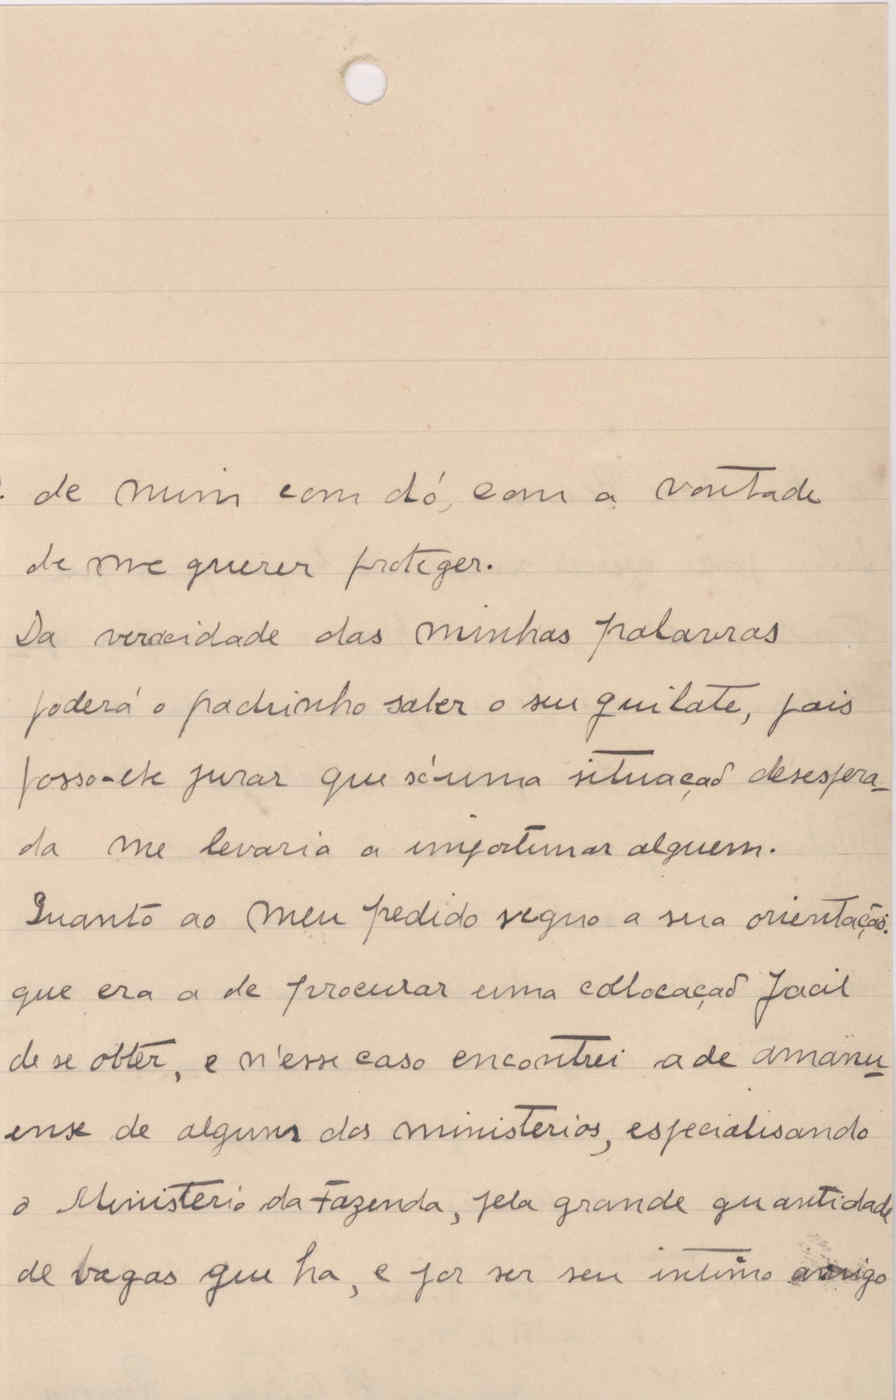 de mim com dó, com a vontade
de me querer proteger.
Da veracidade das minhas palavras
poderá o padrinho saber o seu quilate, pois
posso-lhe jurar que só uma situaçaõ desespera-
da me levaria a importunar alguem.
Quanto ao meu pedido seguo a sua orientação.
que era a de procurar uma collocaçaõ facil
de se obter, e n'esse caso encontrei a de amanu-
ense de alguns dos ministerios, especialisando
o Ministerio da Fazenda, pela grande quantidade
de vagas que ha, e por ser seu intimo amigo